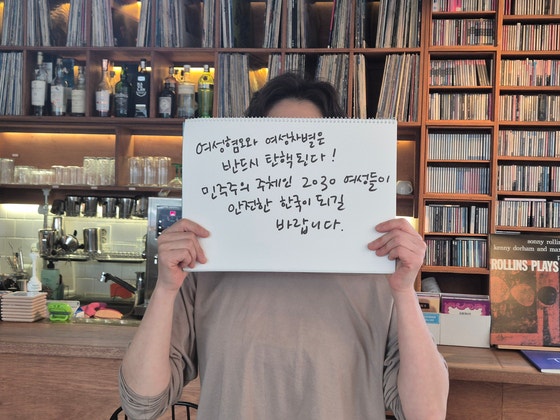 여성혐오와 여성차별은
반드시 탄핵된다!
민주주의 주체인 2030 여성들이
안전한 한국이 되길
바랍니다.
sonny rollins
kenny dorham and max
ROLLINS PLAYS